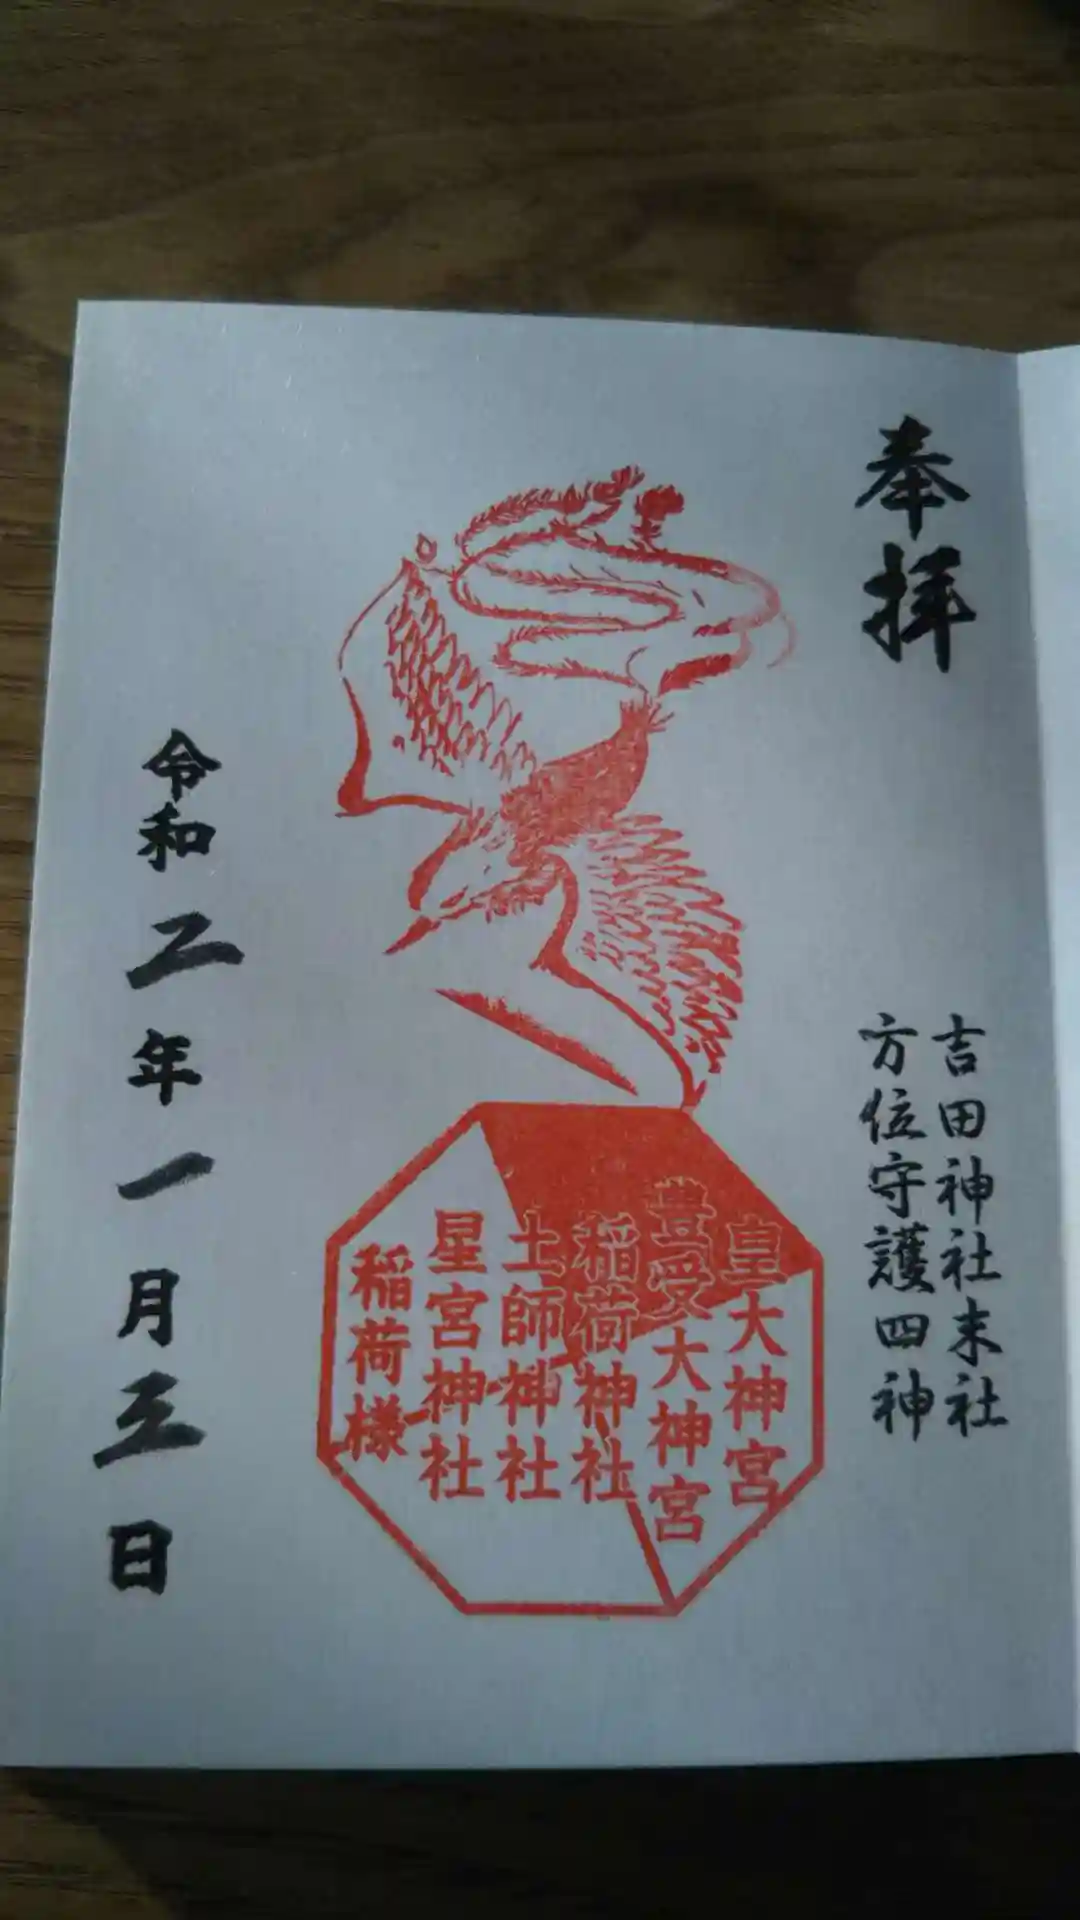 奉拝
吉田神社末社
方位守護四神
皇大神宮
豊受大神宮
稲荷神社
土師神社
星宮神社
稲荷様
令和二年一月三日